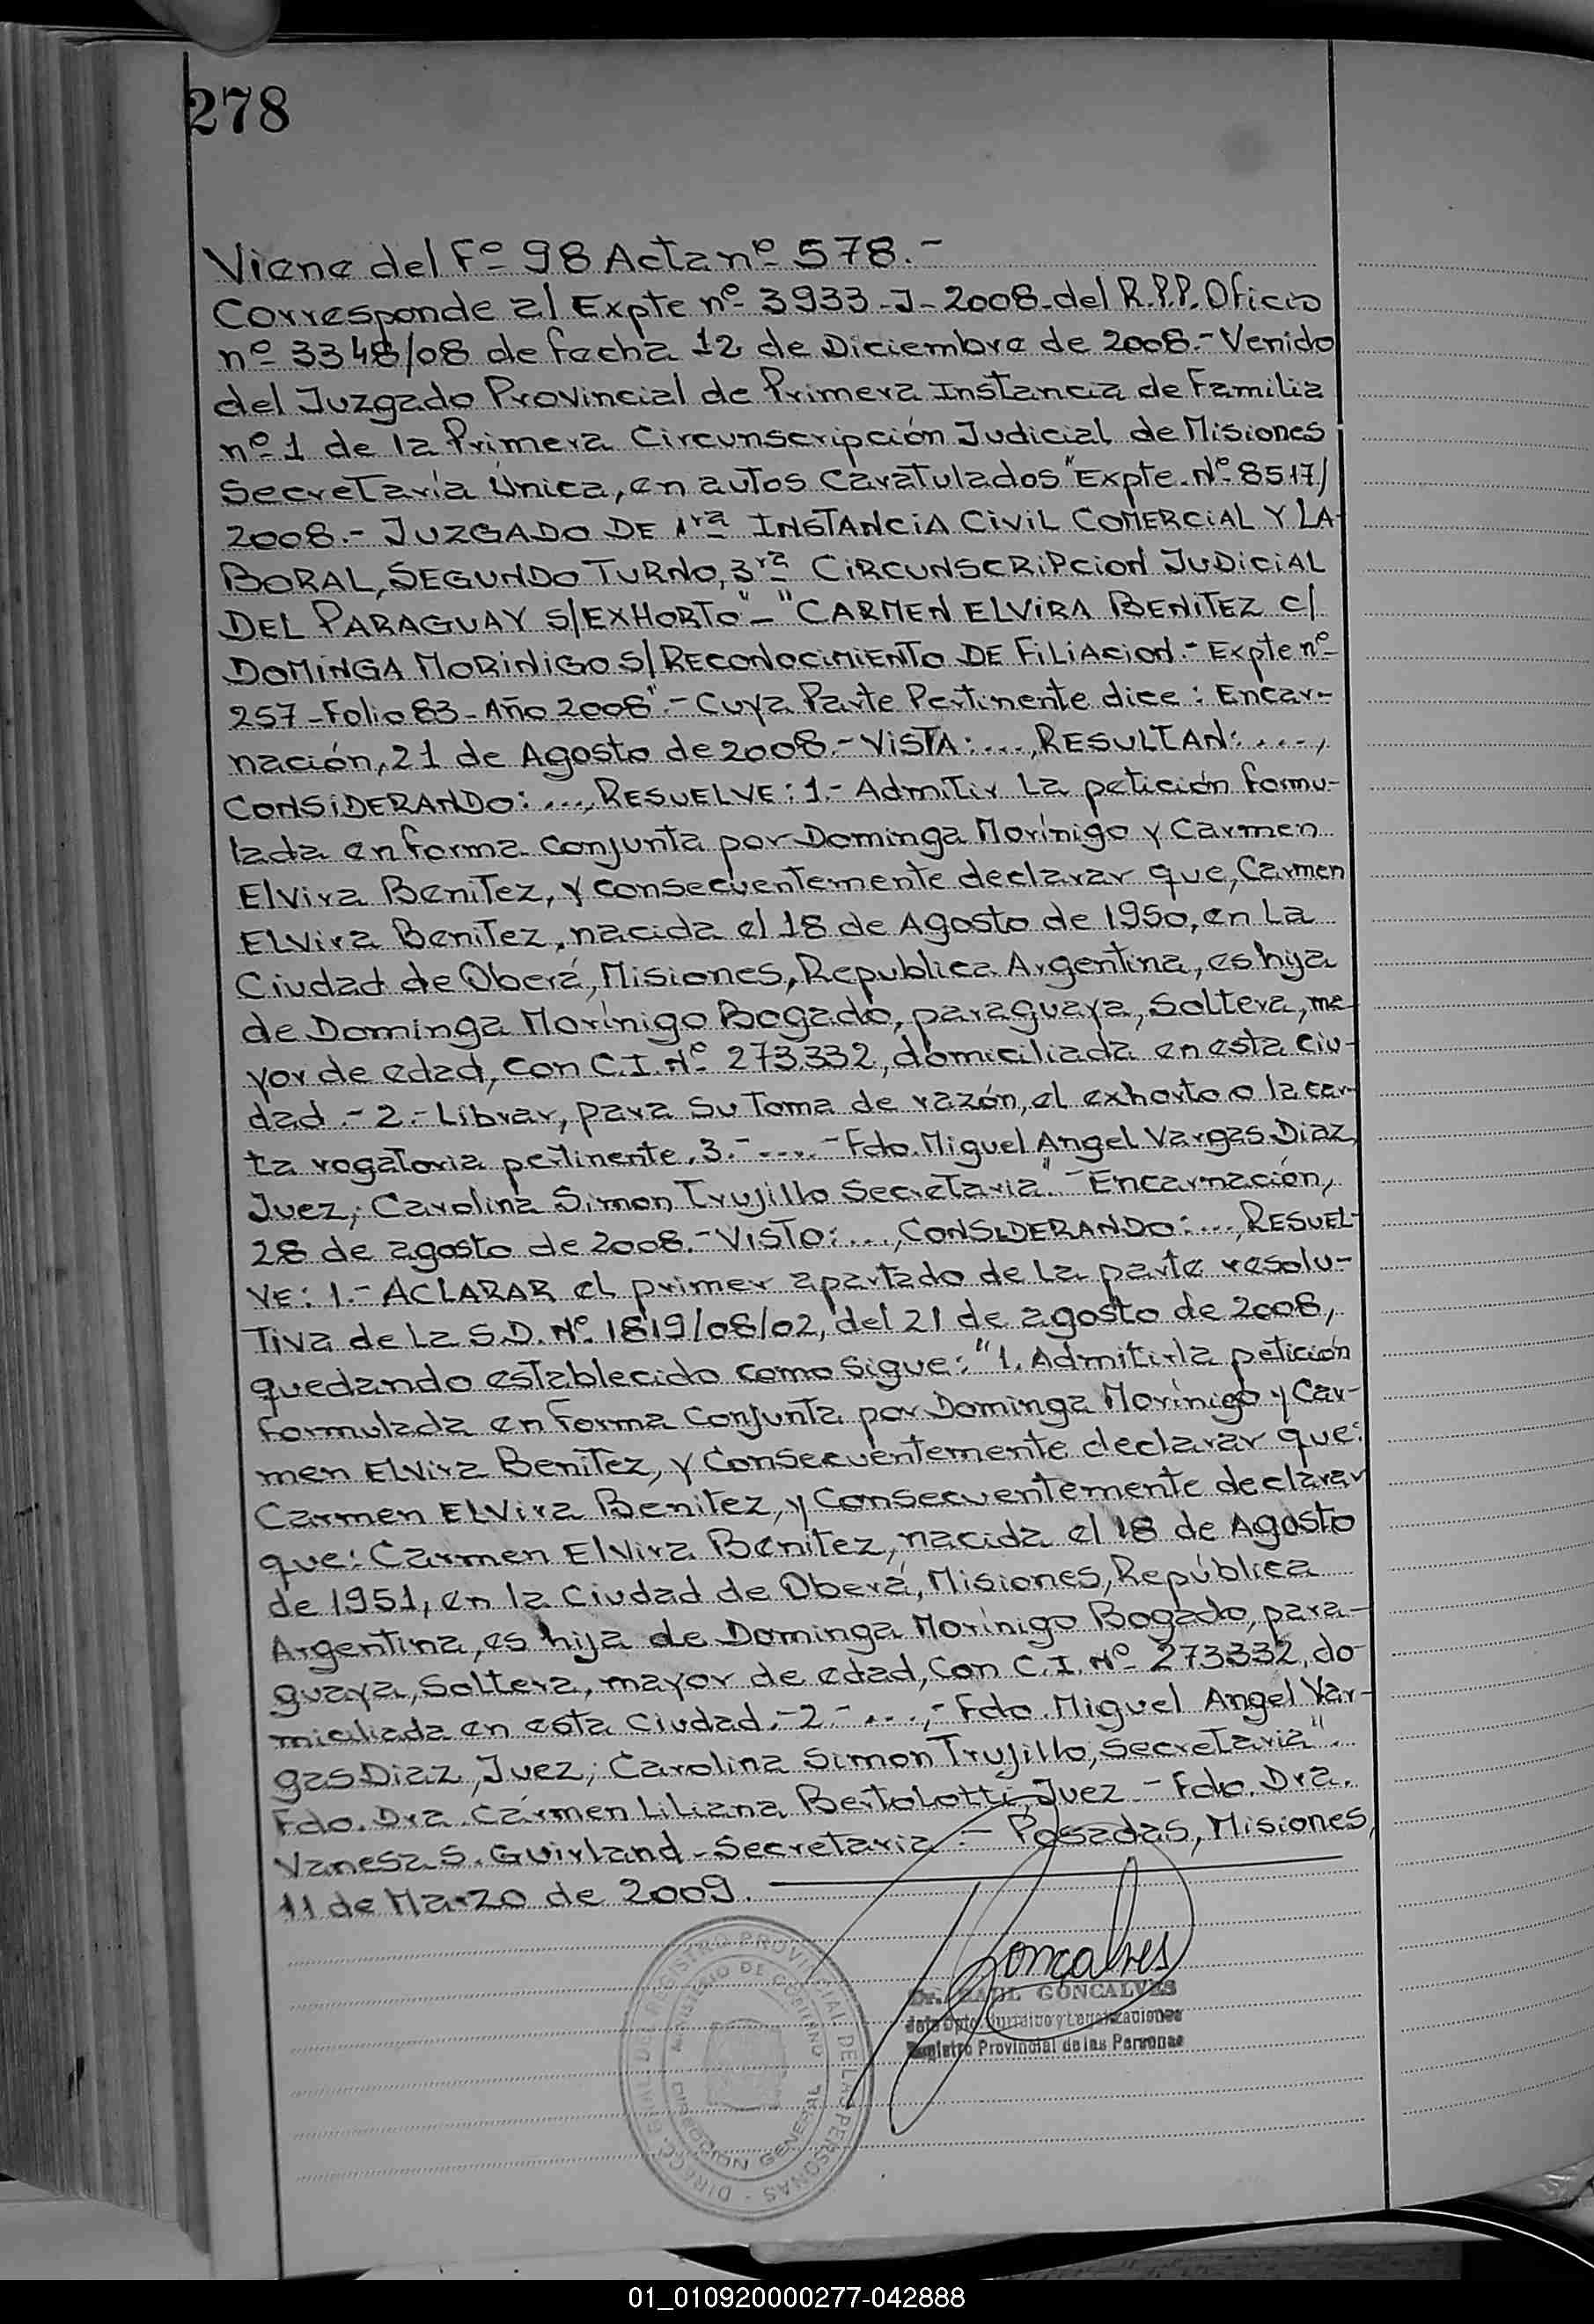 278
Viene del Fº 98 Acta nº 578.-
Corresponde al Expte nº 3933-J-2008-del R.P.P. Oficio
nº 3348/08 de fecha 12 de Diciembre de 2008.- Venido
del Juzgado Provincial de Primera Instancia de Familia
nº 1 de la Primera Circunscripción Judicial de Misiones
Secretaría Única, en autos caratulados "Expte. Nº 8517/
2008.- JUZGADO DE 1ra INSTANCIA CIVIL COMERCIAL Y LA-
BORAL, SEGUNDO TURNO, 3ra CIRCUNSCRIPCION JUDICIAL
DEL PARAGUAY S/EXHORTO"-"CARMEN ELVIRA BENITEZ C/
DOMINGA MORINIGO S/RECONOCIMIENTO DE FILIACION.- Expte nº
257-Folio 83-Año 2008".- Cuya Parte Pertinente dice: Encar-
nación, 21 de Agosto de 2008.- VISTA:...., RESULTAN:....,
CONSIDERANDO:...., RESUELVE: 1.- Admitir La petición formu-
lada en forma conjunta por Dominga Morínigo y Carmen
Elvira Benitez, y consecuentemente declarar que, Carmen
Elvira Benitez, nacida el 18 de Agosto de 1950, en La
Ciudad de Oberá, Misiones, Republica Argentina, es hija
de Dominga Morínigo Bogado, paraguaya, Soltera, ma-
yor de edad, con C.I. Nº 273.332, domiciliada en esta ciu-
dad.- 2.- Librar, para su toma de razón, el exhorto o la car-
ta rogatoria pertinente. 3.- ....- Fdo. Miguel Angel Vargas Diaz,
Juez; Carolina Simon Trujillo Secretaria".- Encarnación,
28 de agosto de 2008.- VISTO:..., CONSIDERANDO:..., RESUEL-
VE: 1.- ACLARAR el primer apartado de la parte resolu-
Tiva de La S.D. Nº. 1819/08/02, del 21 de agosto de 2008,
quedando establecido como sigue: "1. Admitir la petición
formulada en forma conjunta por Dominga Morínigo y Car-
men Elvira Benitez, y consecuentemente declarar que:
Carmen Elvira Benitez, y consecuentemente declarar
que: Carmen Elvira Benitez, nacida el 18 de Agosto
de 1951, en la Ciudad de Oberá, Misiones, República
Argentina, es hija de Dominga Morínigo Bogado, para-
guaya, Soltera, mayor de edad, con C.I. Nº 273332, do-
miciliada en esta Ciudad.- 2.- ...,- Fdo. Miguel Angel Var-
gas Diaz, Juez; Carolina Simon Trujillo, Secretaria".
Fdo. Dra. Cármen Liliana Bertolotti, Juez - Fdo. Dra.
Vanesa S. Guirland - Secretaria.- Posadas, Misiones,
11 de Marzo de 2009.
Goncalves
Dr. RAUL GONCALVES
Jefe Dpto. Jurídico y Legalizaciones
Registro Provincial de las Personas
REGISTRO PROVINCIAL DE LAS PERSONAS - DIRECC. GRAL. DEL
MINISTERIO DE GOBIERNO
DIRECCION GENERAL
01_010920000277-042888